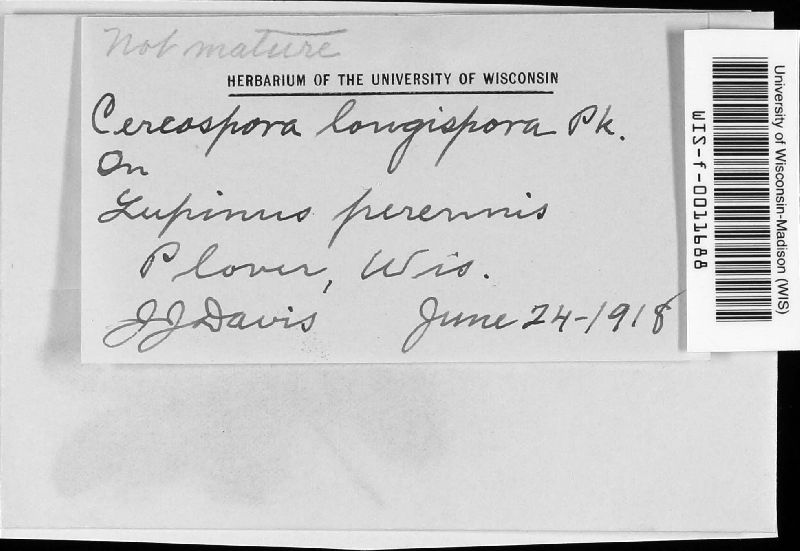 Not mature
HERBARIUM OF THE UNIVERSITY OF WISCONSIN
Cercospora longispora Pk.
On
Lupinus perennis
Plover, Wis.
JJDavis June 24-1918
University of Wisconsin-Madison (WIS)
WIS-f-0011688